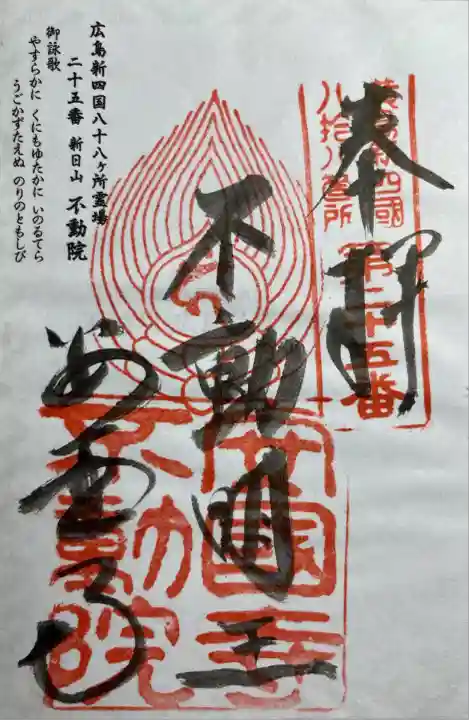 廣島新四國
八拾八箇所
第二十五番
奉拝
不動明王
安國寺
不動院
広島新四国八十八ヶ所霊場
二十五番 新日山 不動院
御詠歌
やすらかに くにもゆたかに いのるてら
うごかずたえぬ のりのともしび